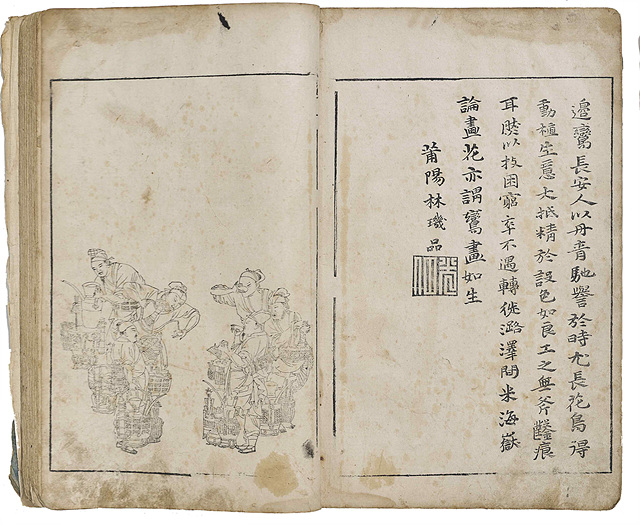 邉鸞長安人以丹青馳譽於時尤長花鳥得
動植生意大抵精於設色如良工之無斧鑿痕
耳然以技困窮卒不遇轉徙潞澤間米海嶽
論畫花亦謂鸞畫如生
莆陽林璣品